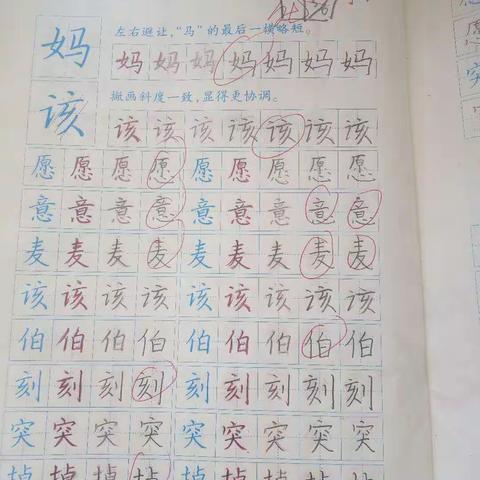 妈
左右避让，“马”的最后一横略短。
妈妈妈妈妈妈妈
该
撇画斜度一致，显得更协调。
该该该该该该该
愿愿愿愿愿愿愿愿愿
意意意意意意意意意
麦麦麦麦麦麦麦麦麦
该该该该该该该该该
伯伯伯伯伯伯伯伯伯
刻刻刻刻刻刻刻刻刻
突突突突突突突突突
掉掉掉掉掉掉掉掉掉